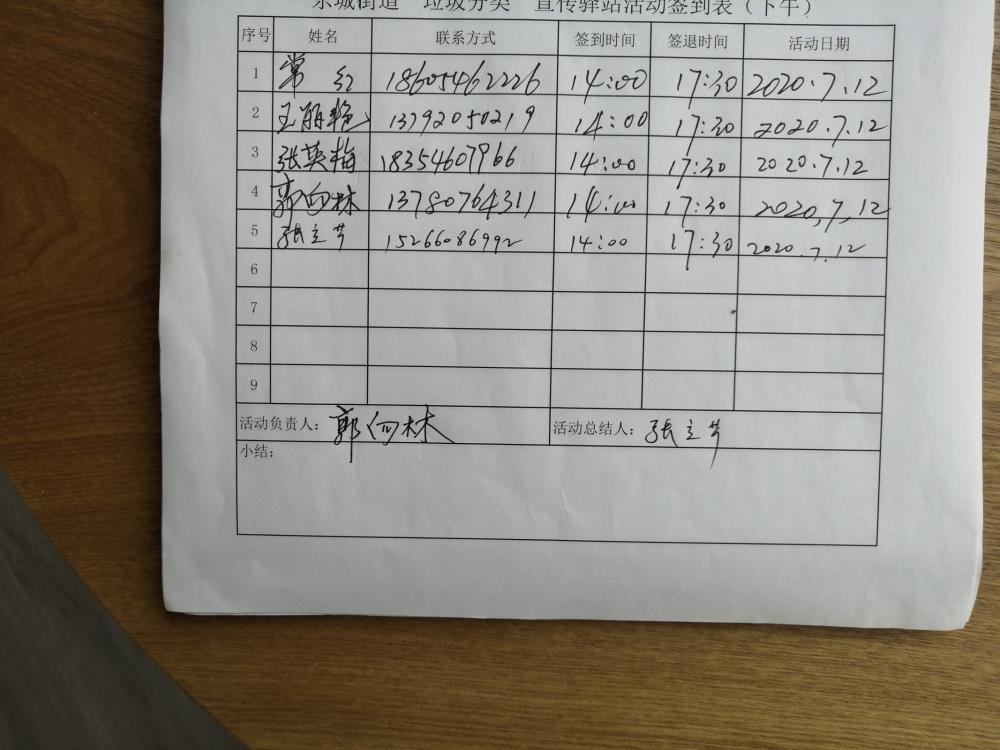 东城街道“垃圾分类”宣传驿站活动签到表（下午）
序号 姓名 联系方式 签到时间 签退时间 活动日期
1 常红 18605462226 14:00 17:30 2020.7.12
2 王丽艳 13792050219 14:00 17:30 2020.7.12
3 张英梅 18354607966 14:00 17:30 2020.7.12
4 郭向林 13780764311 14:00 17:30 2020.7.12
5 张立芹 15266086992 14:00 17:30 2020.7.12
6
7
8
9
活动负责人：郭向林 活动总结人：张立芹
小结：